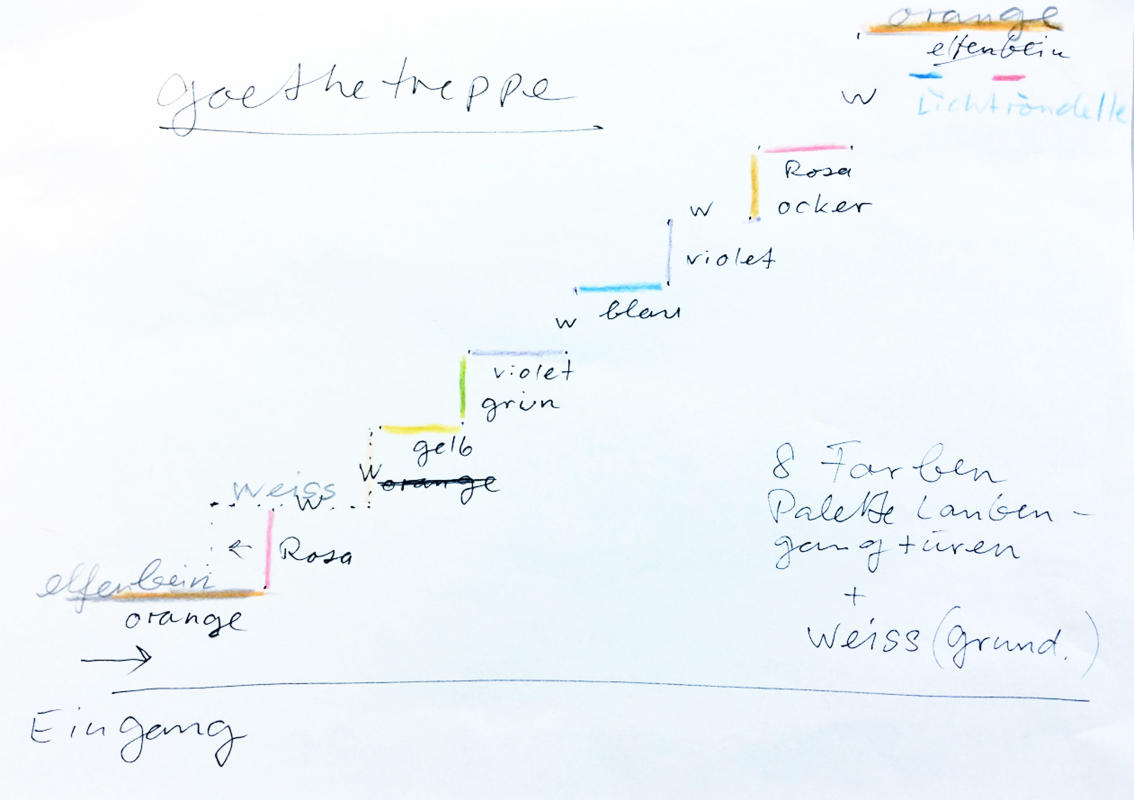 orange
elfenbein
Lichtrondelle
goethetreppe
W
Rosa
ocker
W
violet
blau
W
violet
grün
gelb
W
orange
weiss
W
Rosa
elfenbein
orange
8 Farben
Palette Lauben-
gangtüren
+
weiss (Grund.)
Eingang